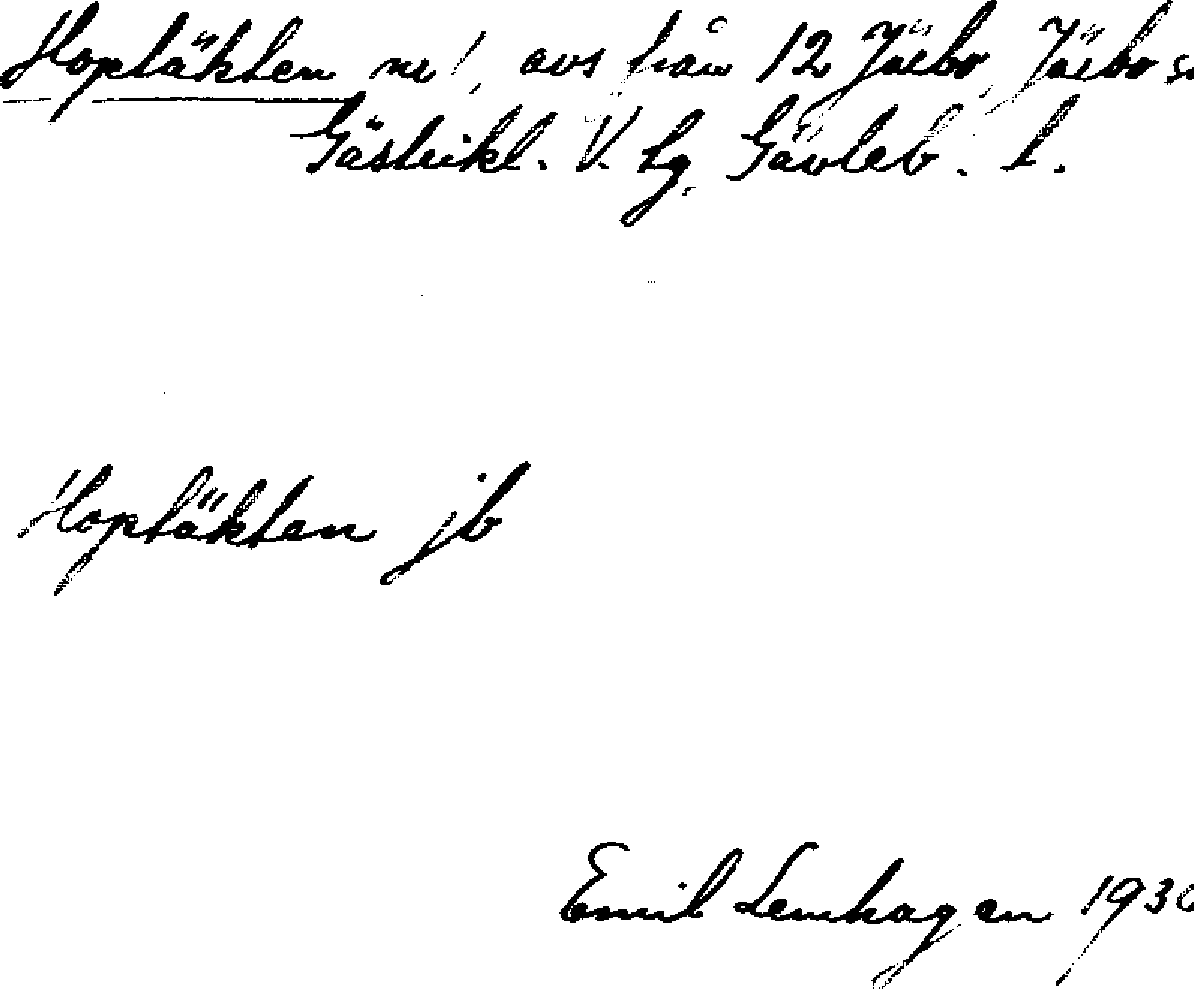 Hoptäkten nr 1, avs från 12 Järbo, Järbo s
Gästrikl. V. hg. Gävleb. l.
Hoptäkten jb
Emil Lenhagen 1930